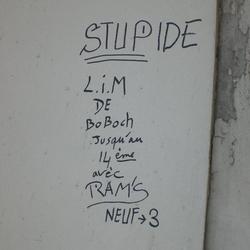 STUPIDE
L.i.M
DE
BoBoch
Jusqu'au
14ème
avèc
RAM'S
NEUF→3